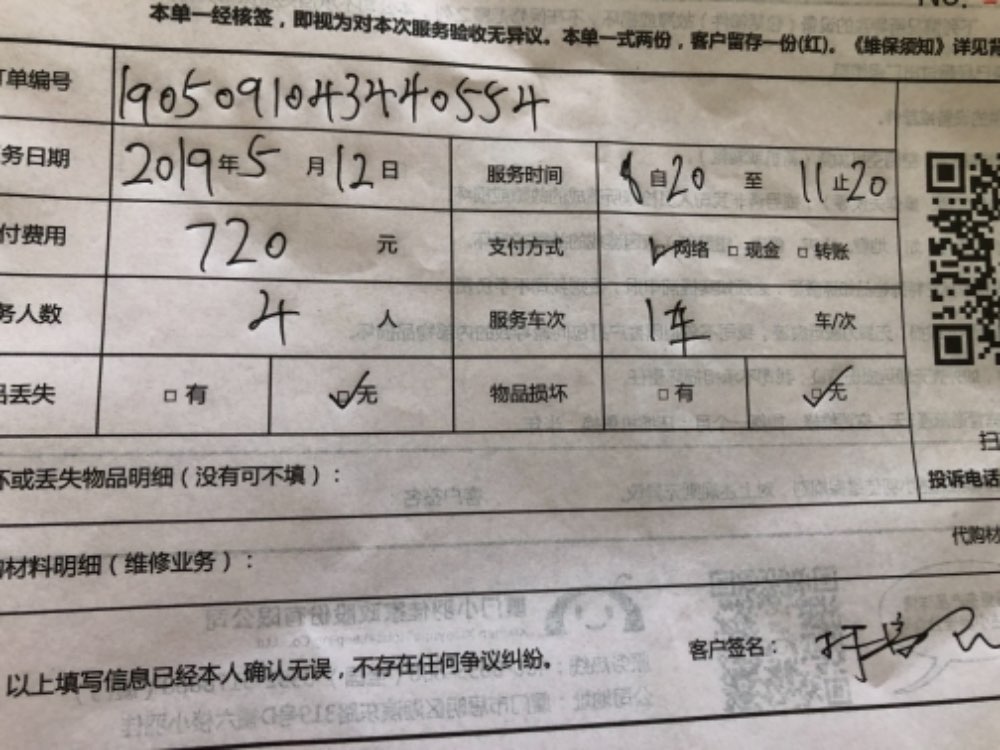 NO.
本单一经核签，即视为对本次服务验收无异议。本单一式两份，客户留存一份(红)。《维保须知》详见背
订单编号 1905091043440554
务日期 2019年5月12日 服务时间 8自20至11止20
付费用 720元 支付方式 ☑网络 □现金 □转账
务人数 4人 服务车次 1车 车/次
品丢失 □有 ☑无 物品损坏 □有 ☑无
扫
坏或丢失物品明细（没有可不填）：
投诉电话
代购材
购材料明细（维修业务）：
客户签名：
以上填写信息已经本人确认无误，不存在任何争议纠纷。